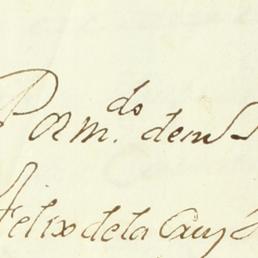 Pam.do dem
Felix dela Cruz